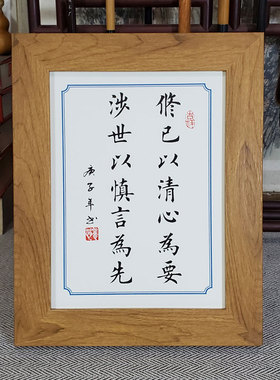 修己以清心為要
涉世以慎言為先
庚子年